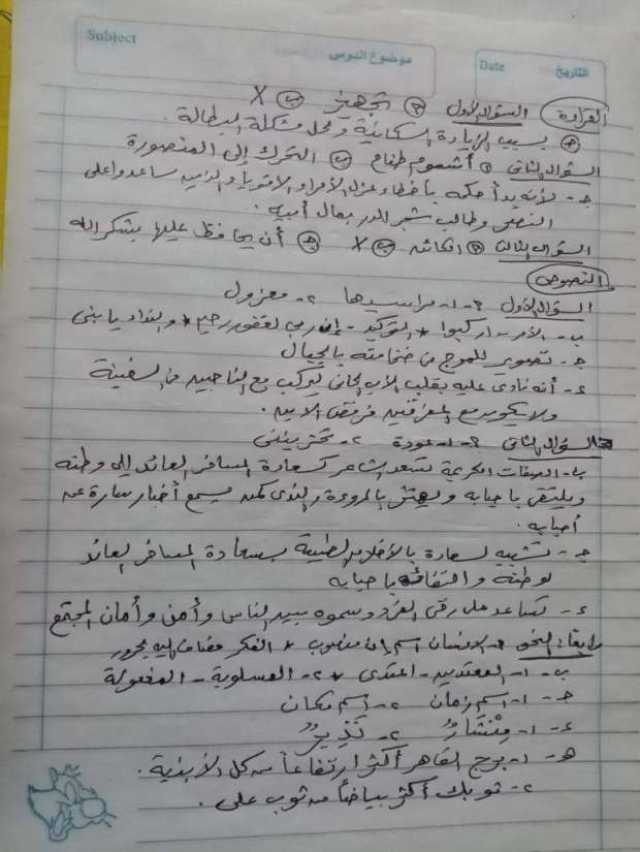 Subject
موضوع الدرس
Date
التاريخ
القراءة السؤال الأول أ تجهيز ب X
ج بسبب الزيادة السكانية وحل مشكلة البطالة.
السؤال الثاني أ أشموم طناح ب التحرك إلى المنصورة
ج - لأنه بدأ حكمه بأخطاء وعزل الأمراء الأقوياء الذين ساعدوا على
النصر وطالب شجر الدر بمال أبيه.
السؤال الثالث ب X ج أن يحافظ عليها بشكر الله
النصوص
السؤال الأول أ - ١ - مراسيها ٢ - معزول
ب - الأمر - اركبوا * التوكيد - إن ربي لغفور رحيم * والنداء يا بني
ج - تصوير للموج من ضخامته بالجبال
د - أنه نادى عليه بقلب الأب الحاني ليركب مع الناجين في السفينة
ولا يكون مع المغرقين فرفض الابن.
السؤال الثاني أ - ١ - عودة ٢ -
ب - الصفات الكريمة تسعد الشاعر كسعادة المسافر العائد إلى وطنه
ويلتقى بأحبابه ويهتز بالمروءة والندى كمن يسمع أخبار سارة عن
أحبابه.
ج - تشبيه لسعادة بالأخلاق الطيبة بسعادة المسافر العائد
لوطنه والتقائه بأحبابه
د - تساعد على رقى الفرد وسموه بين الناس وأمن وأمان المجتمع
رابعا: النحو أ - الإنسان اسم إن منصوب * الفكر مضاف إليه مجرور
ب - ١ - المعتدين - اعتدى * ٢ - المسلوبة - المفعولة
ج - ١ - اسم زمان ٢ - اسم مكان
د - ١ - مِنْشَارٌ ٢ - نَذِيرٌ
هـ - ١ - برج القاهرة أكثر ارتفاعاً من كل الأبنية.
٢ - ثوبك أكثر بياضاً من ثوب على.